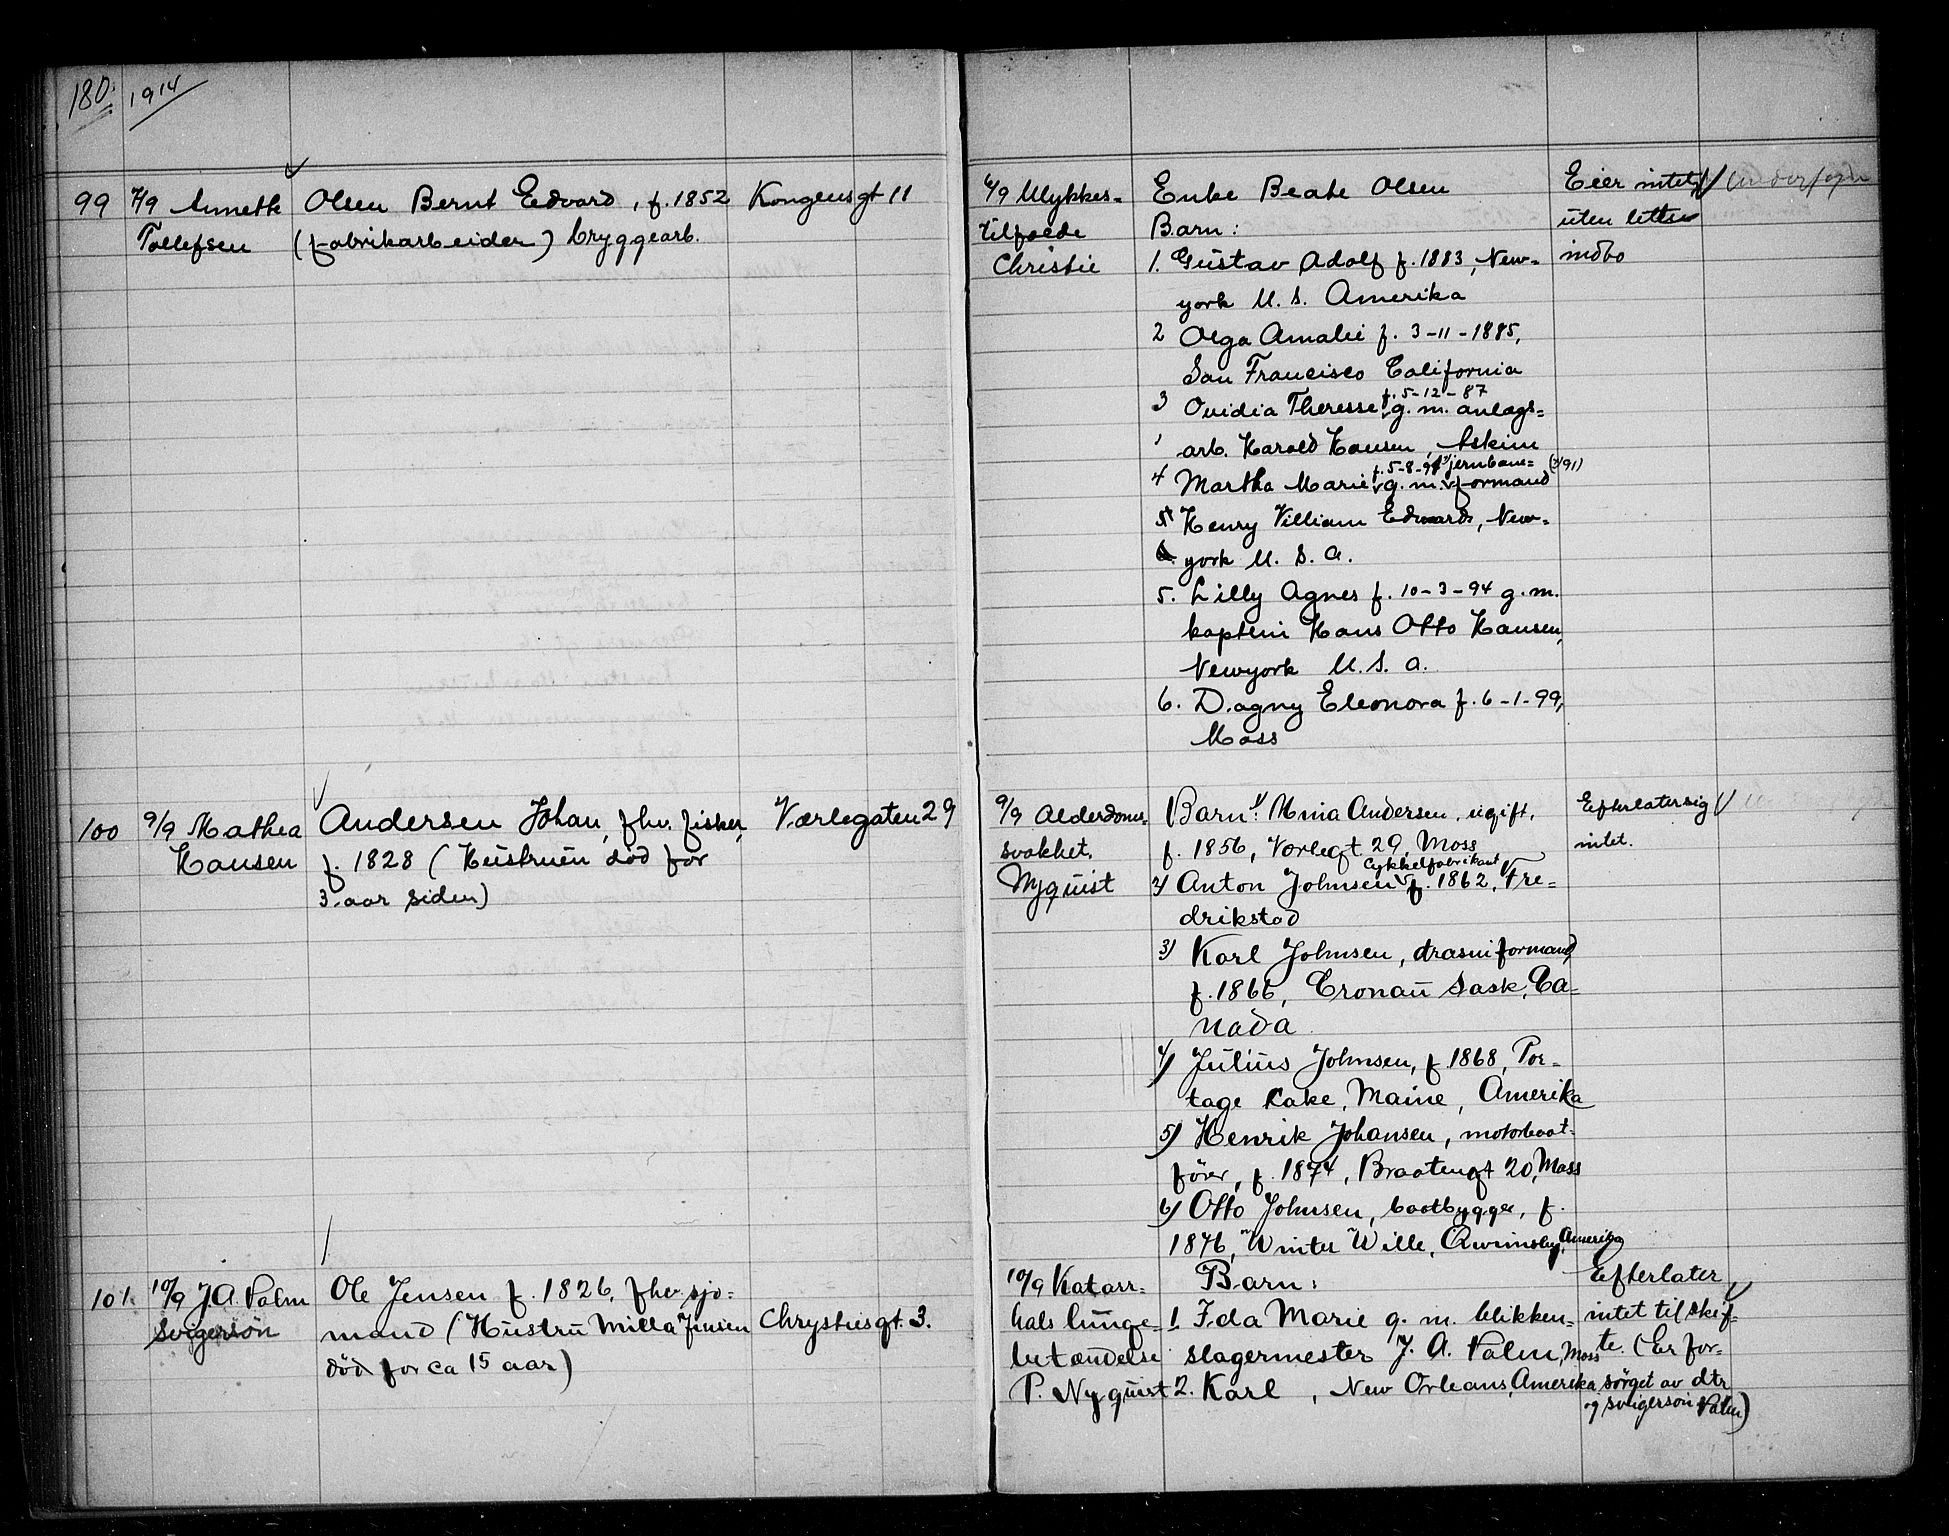 180. 1914
99 7/9 Annethe Olsen Bernt Edvard, f. 1852 Kongensgt 11
Tollefsen (fabrikarbeider) bryggearb.
6/9 Ulykkes- Enke Beate Olsen Eier intet
tilfælde Barn: uten litt
Christie 1. Gustav Adolf f. 1883, New- indbo
york U. S. Amerika
2 Olga Amalie f. 3-11-1885,
San Francisco California
f. 5-12-87
3 Ovidia Theresse g. m. anlægs-
arb. Harald Hansen, Askim
f. 5-8-91 jernbane-
4 Martha Marie g. m. formand
5 Henry William Edward, New-
york U. S. A.
5. Lilly Agnes f. 10-3-94 g. m.
kaptein Hans Otto Hansen,
Newyork U. S. A.
6. Dagny Eleonora f. 6-1-99,
Moss
100 9/9 Mathea Andersen Johan, fhv. fisker, Værlegaten 29
Hansen f. 1828 (Hustruen død for
3 aar siden)
9/9 Alderdoms- Barn: 1) Mina Andersen, ugift, Efterlater sig
svakhet. f. 1856, Vorlegt 29, Moss intet.
cykkelfabrikant
Nyquist 2) Anton Johnsen f. 1862, Fre-
drikstad
3) Karl Johnsen, formand,
f. 1866, Cronau Sask, Ca-
nada
4) Julius Johnsen, f. 1868, Por-
tage Lake, Maine, Amerika
5) Henrik Johansen, motorbaat-
fører, f. 1874, Braatengt 20, Moss
6) Otto Johnsen, baatbygger, f.
1876, Winter Wille, Amerika
101. 10/9 J. A. Palm Ole Jensen f. 1826, fhv. sjø-
Svigersøn mand (Hustru Milla Jensen Chrystiesgt. 3.
død for ca 15 aar)
10/9 Katarr- Barn: Efterlater
hals lunge- 1. Ida Marie g. m. blikken- intet til skif-
betændelse slagermester J. A. Palm, Moss te. (Er for-
P. Nyquist 2. Karl, New Orleans, Amerika sørget av dtr
og svigersøn Palm)